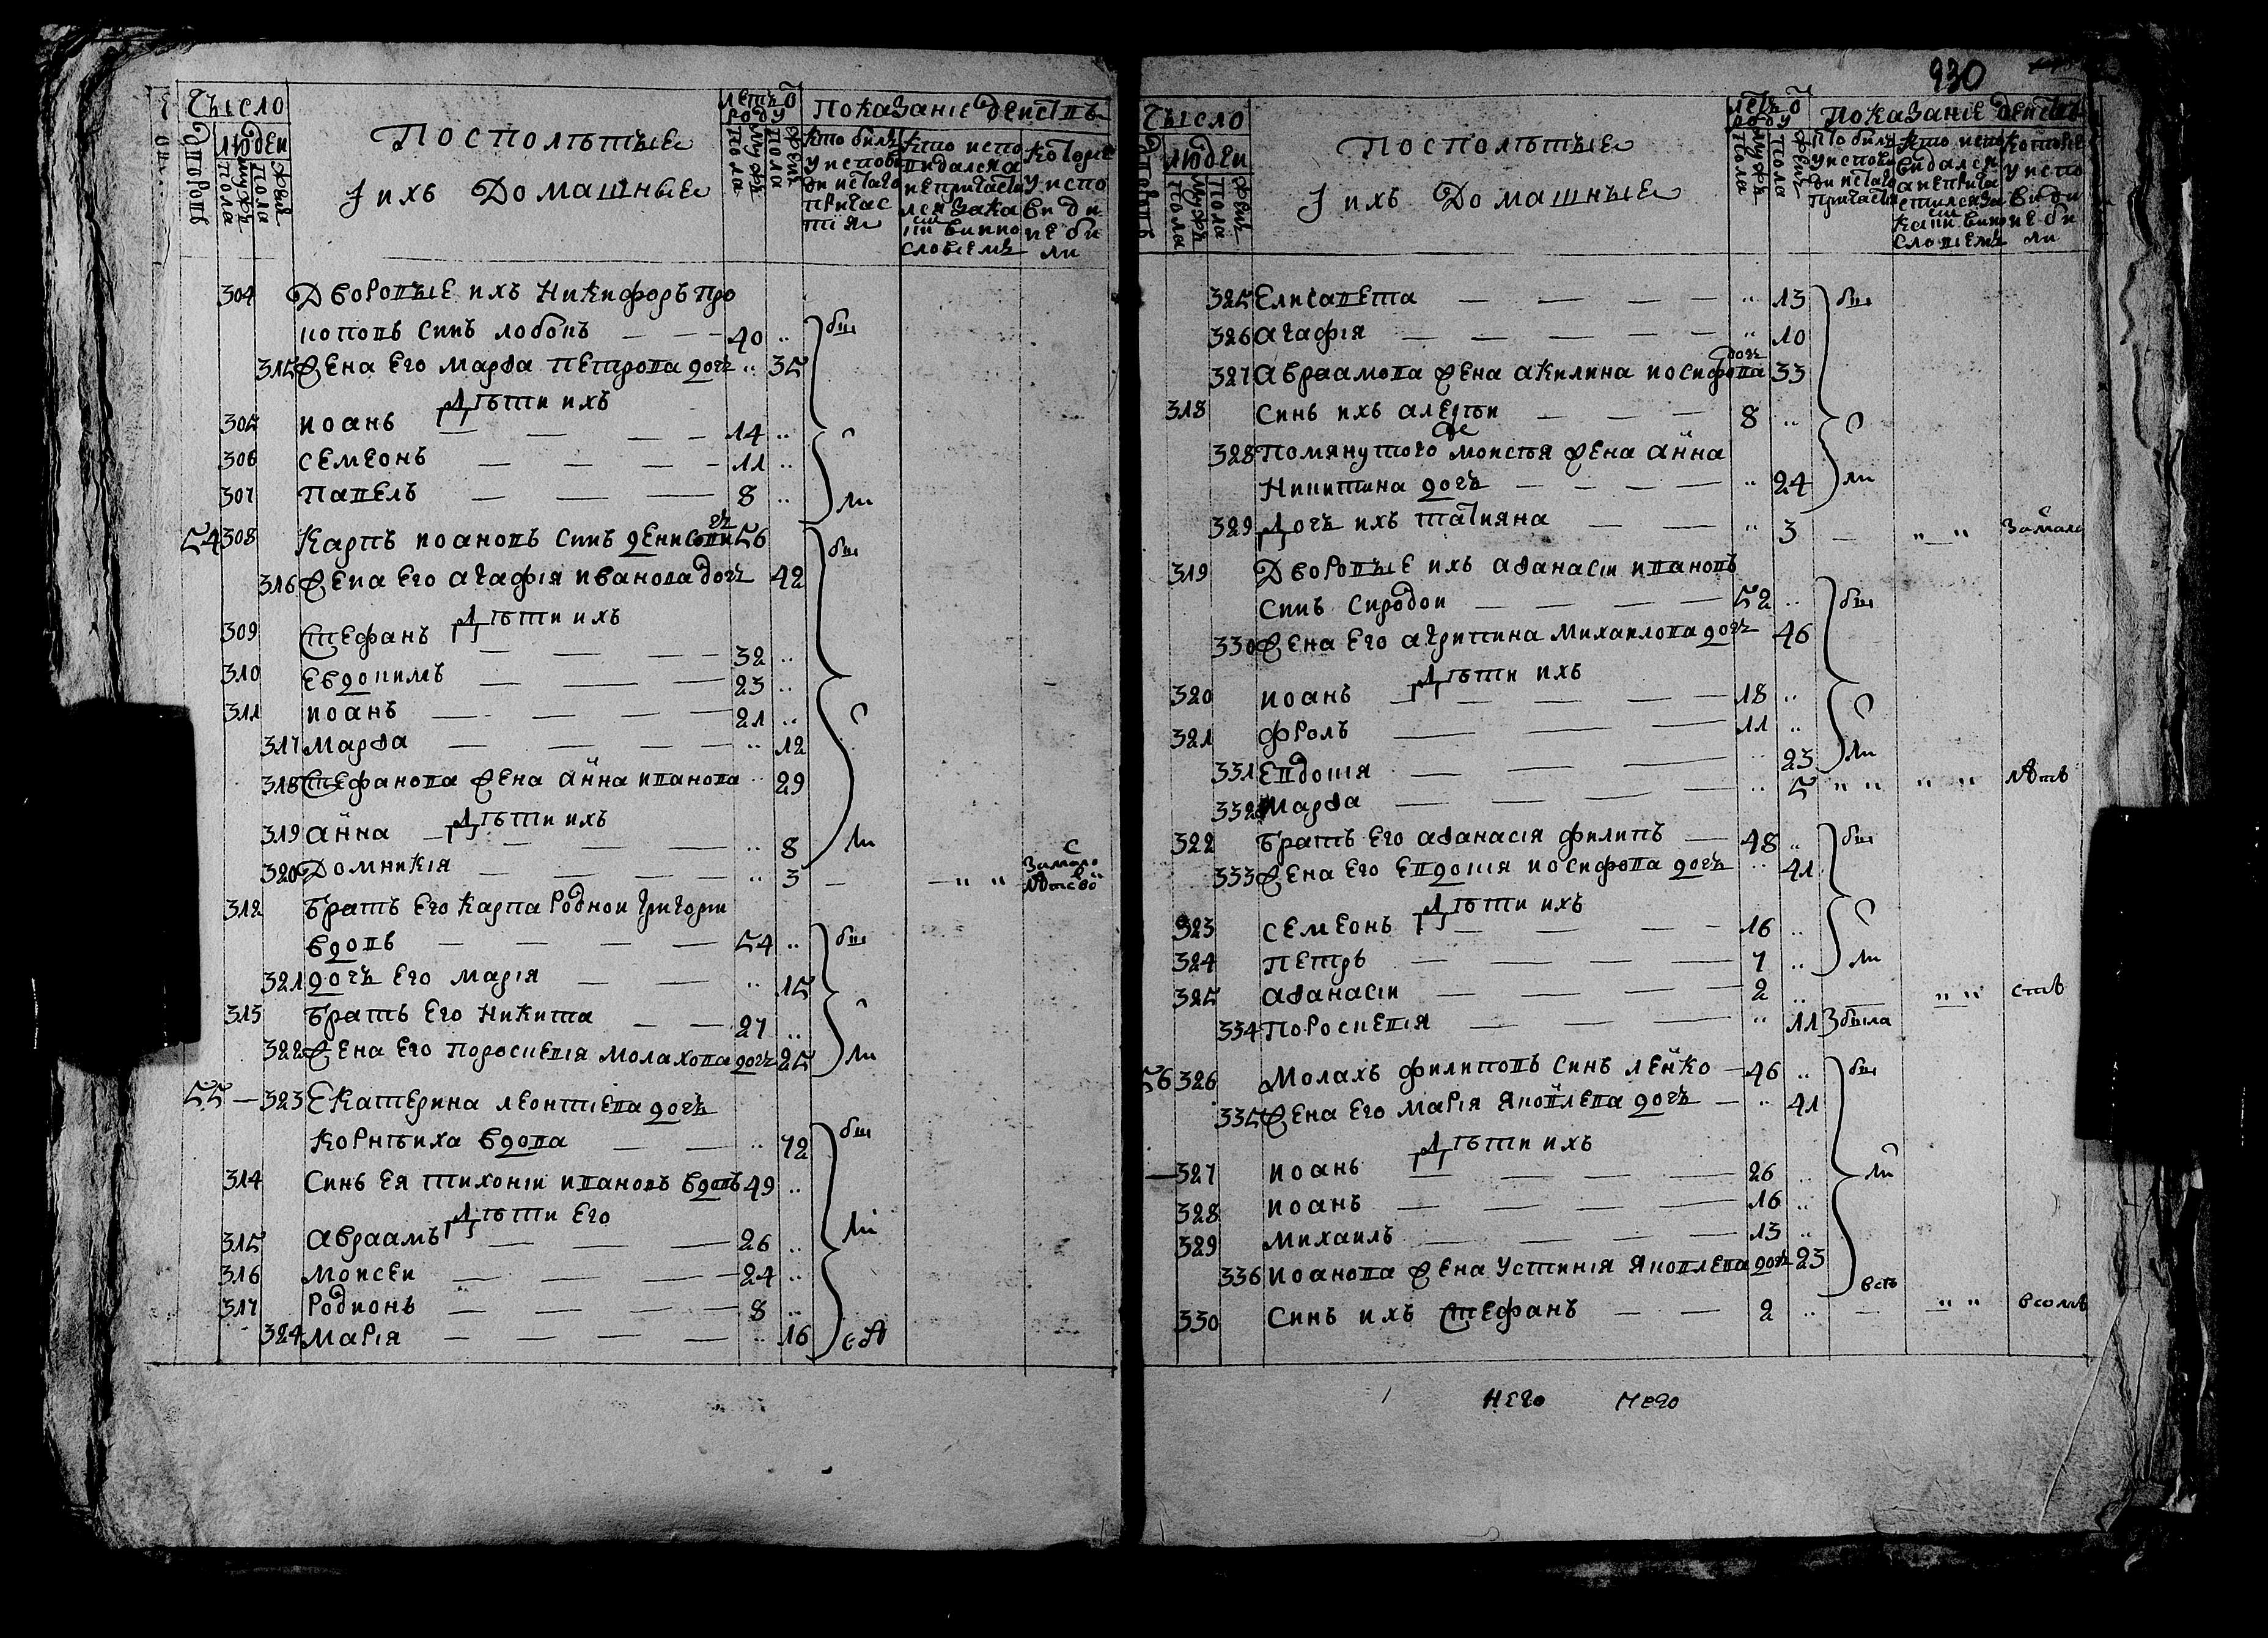 Чысло
Дворовъ
Людеи
Мужж. пола
Женж. пола
Посполѣтые
Ї ихъ Домашные
Летъ ѿ роду
Мужж. пола
Женж. пола
Показание деиствъ
Кто билъ у исповѣди и стаго причастия
Кто исповидался а не причастился за какимъ виннословиемъ
Которие у исповиди не били
304 Дворовые ихъ Никифоръ Про
поповъ синъ лобовъ 40 ..
315 Жена его марѳа петрова дочъ .. 35
Дѣти ихъ
305 иоанъ 14 ..
306 семеонъ 11 ..
307 павелъ 8 ..
бы
ли
54 308 Карпъ иоановъ синъ денисовичъ 56
316 Жена его агафия иванова дочъ 42
Дѣти ихъ
309 Стефанъ 32 ..
310 евдокимъ 23 ..
311 иоанъ 21 ..
317 марѳа .. 12
318 Стефанова жена анна иванова .. 29
Дѣти ихъ
319 анна .. 8
320 Домникия .. 3 — — " " За мало лѣтсво
бы
ли
312 братъ его карпа роднои григори
вдовъ 54 ..
321 дочъ его мария .. 15
313 братъ его никита 27 ..
322 Жена его поросковия молахова дочъ 25
бы
ли
55 — 323 Екатерина леонтиева дочъ
корнѣиха вдова .. 72
314 Синъ ея тихонии ивановъ вдовъ 49 ..
Дѣти его
315 авраамъ 26 ..
316 моисеи 24 ..
317 родионъ 8 ..
324 мария .. 16
бы
ли
930
Чысло
Дворовъ
Людеи
Мужж. пола
Женж. пола
Посполѣтые
Ї ихъ Домашные
Летъ ѿ роду
Мужж. пола
Женж. пола
Показание деиствъ
Кто билъ у исповѣди и стаго причастия
Кто исповидался а не причастился за какимъ виннословиемъ
Которие у исповиди не били
325 Елисавета .. 13
326 агафия .. 10
327 авраамова жена акилина иосифова дочъ 33
318 Синъ ихъ алеѯѣи 8 ..
328 Помянутого же моисѣя жена анна
Никитина дочъ .. 24
бы
ли
329 Дочъ ихъ татияна .. 3 — " " За мало
319 Дворовые ихъ аѳанасии ивановъ
синъ 52 ..
330 Жена его агрипина михаилова дочъ 46
Дѣти ихъ
320 иоанъ 18 ..
321 фролъ 11 ..
331 евдокия .. 23
бы
ли
332 марѳа .. 5 " " " " лѣтъ
322 братъ его аѳанасия филипъ 48 ..
333 Жена его евдокия иосифова дочъ .. 41
Дѣти ихъ
323 семеонъ 16 ..
324 петръ 7 ..
бы
ли
325 аѳанасии 2 .. — " " ств
334 поросковия .. 11 была
56 326 Молахъ филиповъ синъ ленко 46 ..
335 Жена его мария яковлева дочъ .. 41
Дѣти ихъ
327 иоанъ 26 ..
328 иоанъ 16 ..
329 михаилъ 13 ..
336 иоанова жена устиния яковлева дочъ 23
бы
ли
330 Синъ ихъ стефанъ 2 .. — " "
Него Него